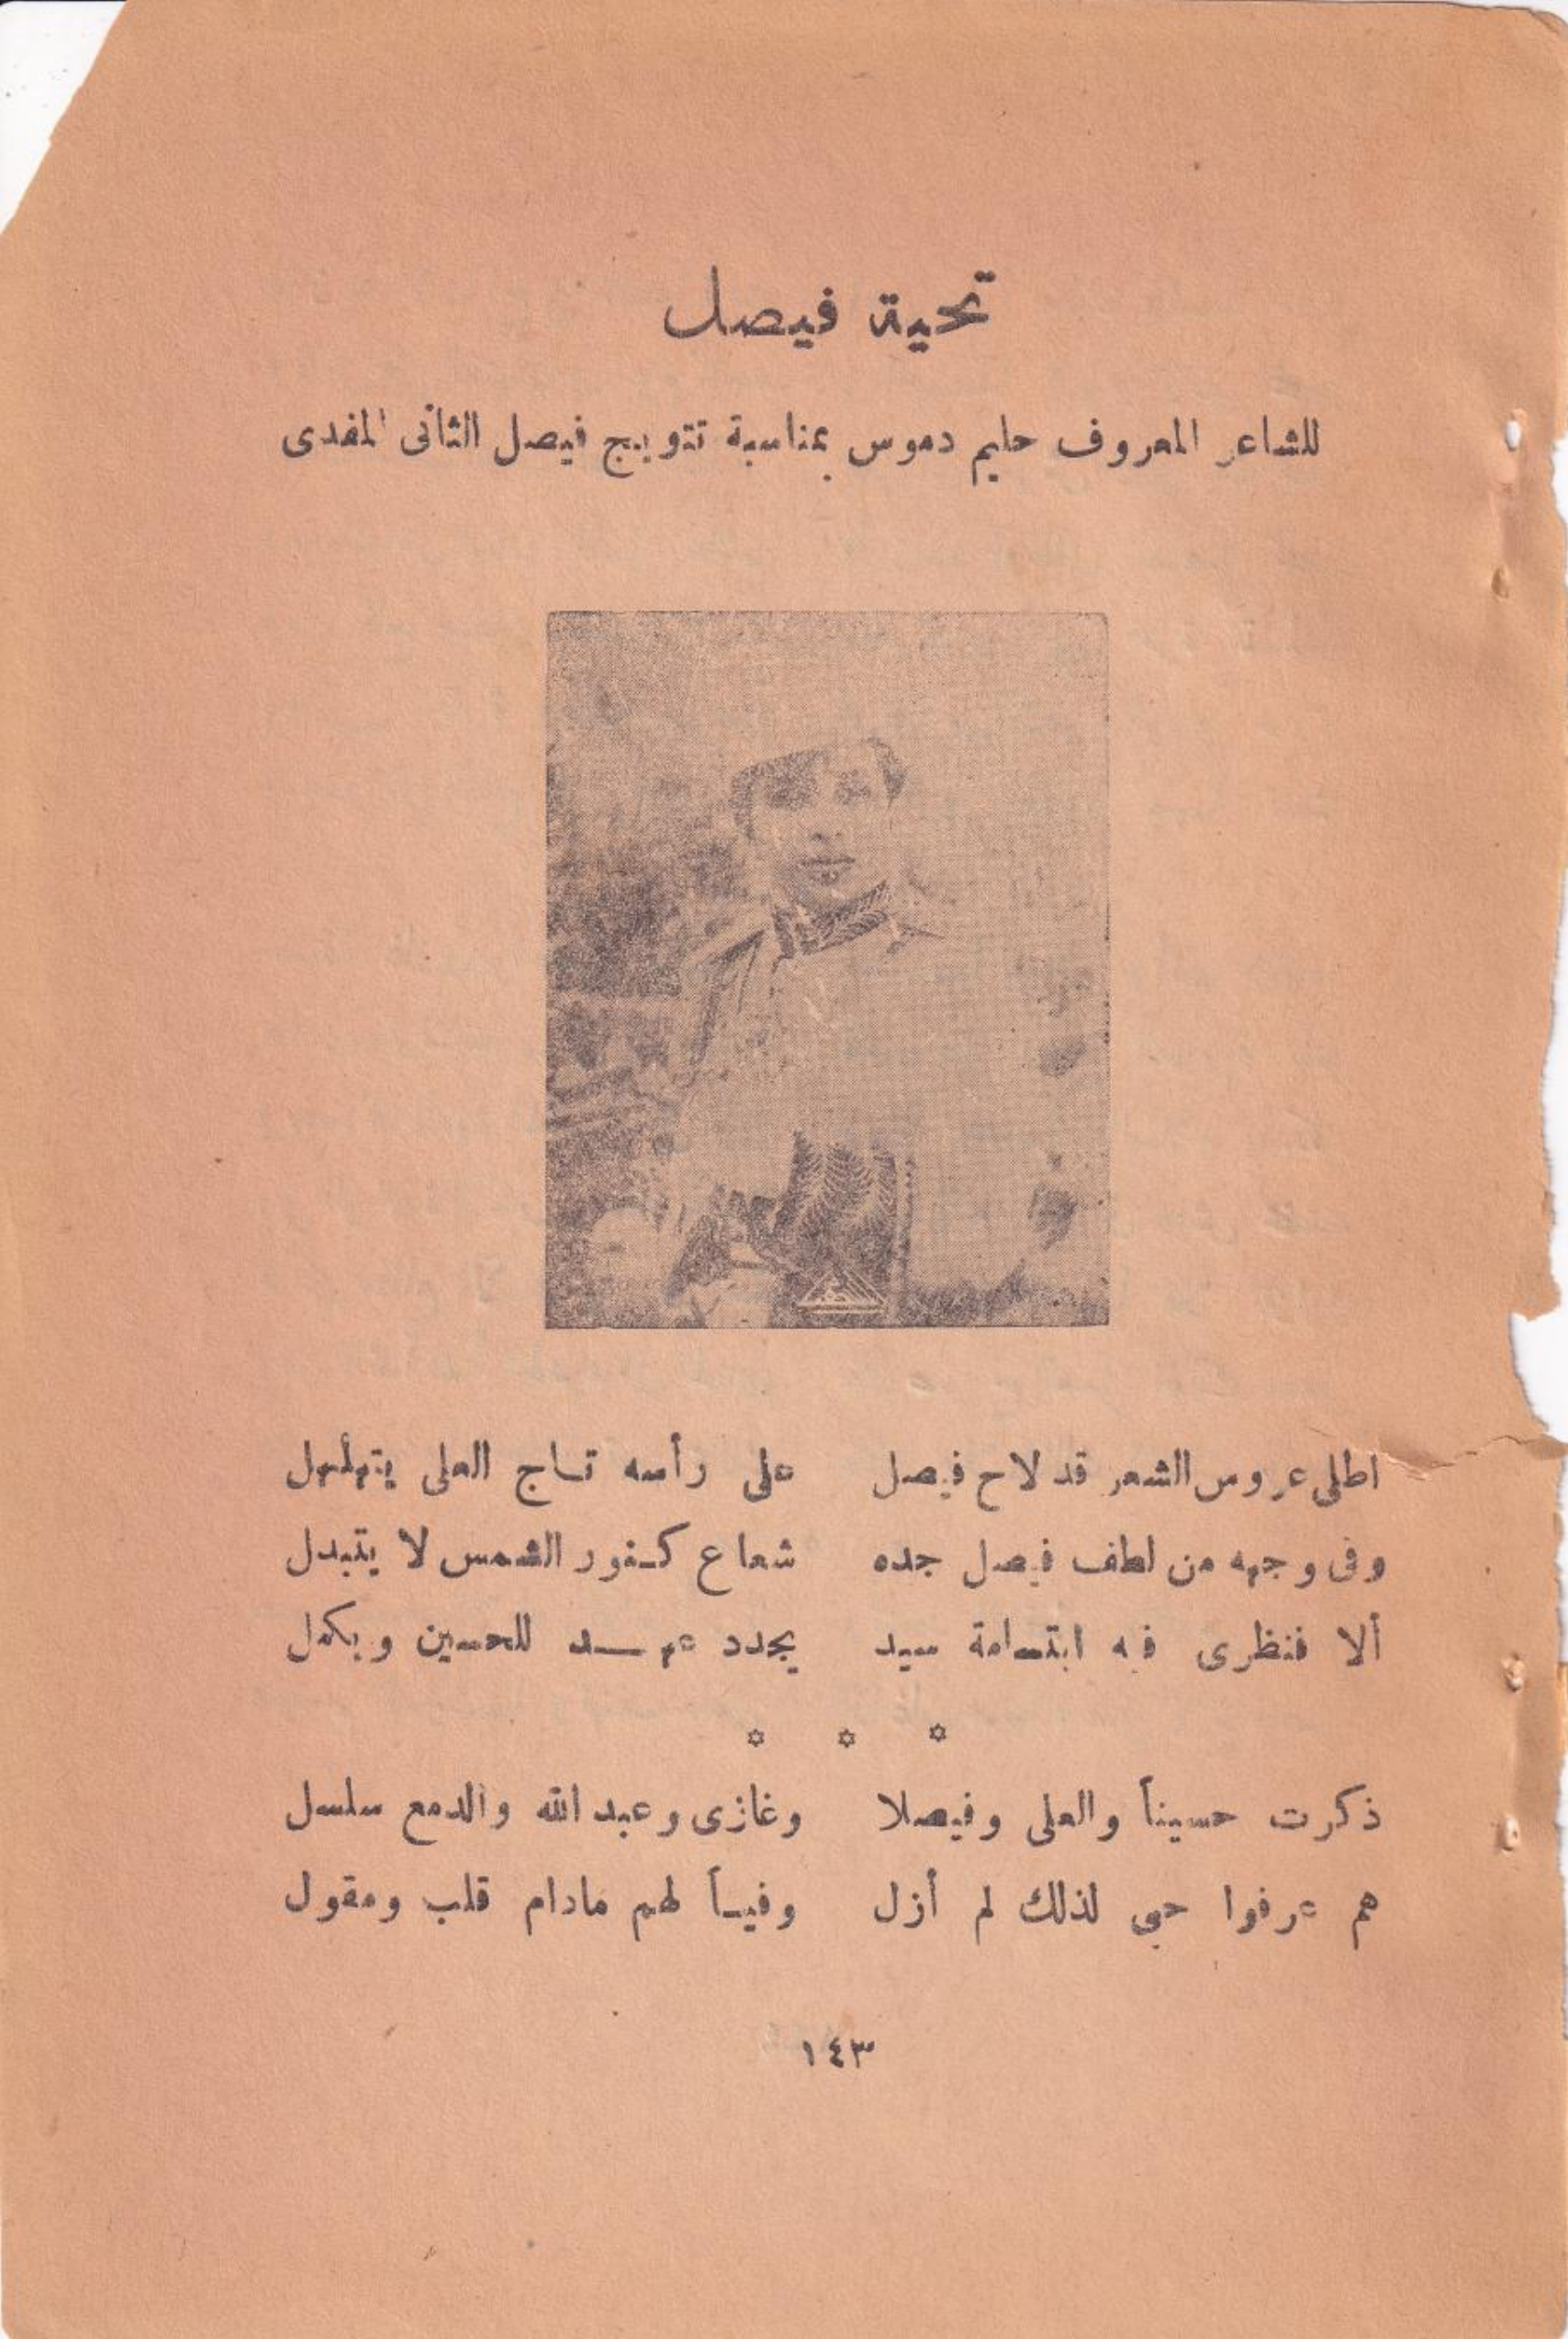 تحية فيصل
للشاعر المعروف حليم دموس بمناسبة تتويج فيصل الثانى المفدى
اطلى عروس الشعر قد لاح فيصل على رأسه تاج العلى يتهلهل
وفى وجهه من لطف فيصل جده شعاع كنور الشمس لا يتبدل
ألا فنظرى فيه ابتسامة سيد يجدد عهد للحسين ويكمل
* * *
ذكرت حسيناً والعلى وفيصلا وغازى وعبد الله والدمع سلسل
هم عرفوا حبى لذلك لم أزل وفياً لهم مادام قلب ومقول
١٤٣